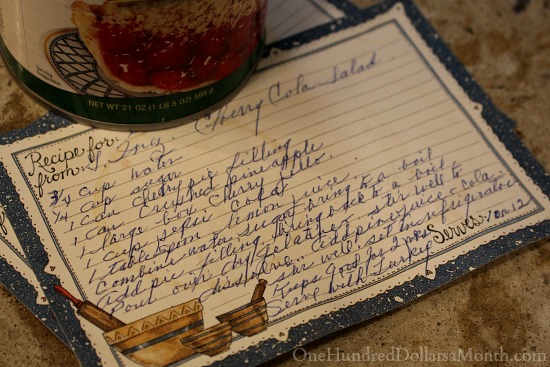 NET WT 21 OZ (1 LB 5 OZ) 595 g
Recipe for: Cherry Cola Salad
from:
3/4 cup water
1/4 cup sugar
1 can cherry pie filling
1 can crushed pineapple
1 large box cherry Jello
1 cup Pepsi cola
1 tablespoon lemon juice
Combine water, sugar bring to a boil
Add pie filling, bring back to a boil
Pour over dry gelatin. stir well to
dissolve. Add pineapple juice - cola
stir well, set in refrigerator
Keeps good for 2 wks
Serves: 10 or 12
Serve with Turkey
OneHundredDollarsaMonth.com